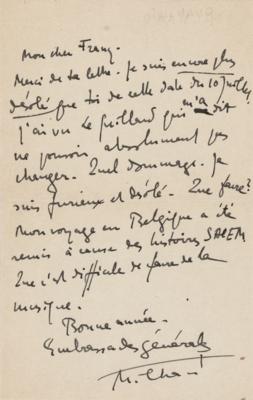 Mon cher Franz.
Merci de ta lettre. Je suis encore plus
désolé que toi de cette date du 10 Juillet.
J'ai vu Le qui m'a dit
ne pouvoir absolument pas
changer. Quel dommage. Je
suis furieux et désolé. Que faire?
Mon voyage en Belgique a été
remis à cause des histoires SACEM
Que c'est difficile de faire de la
musique.
Bonne année.
Embrassades générales